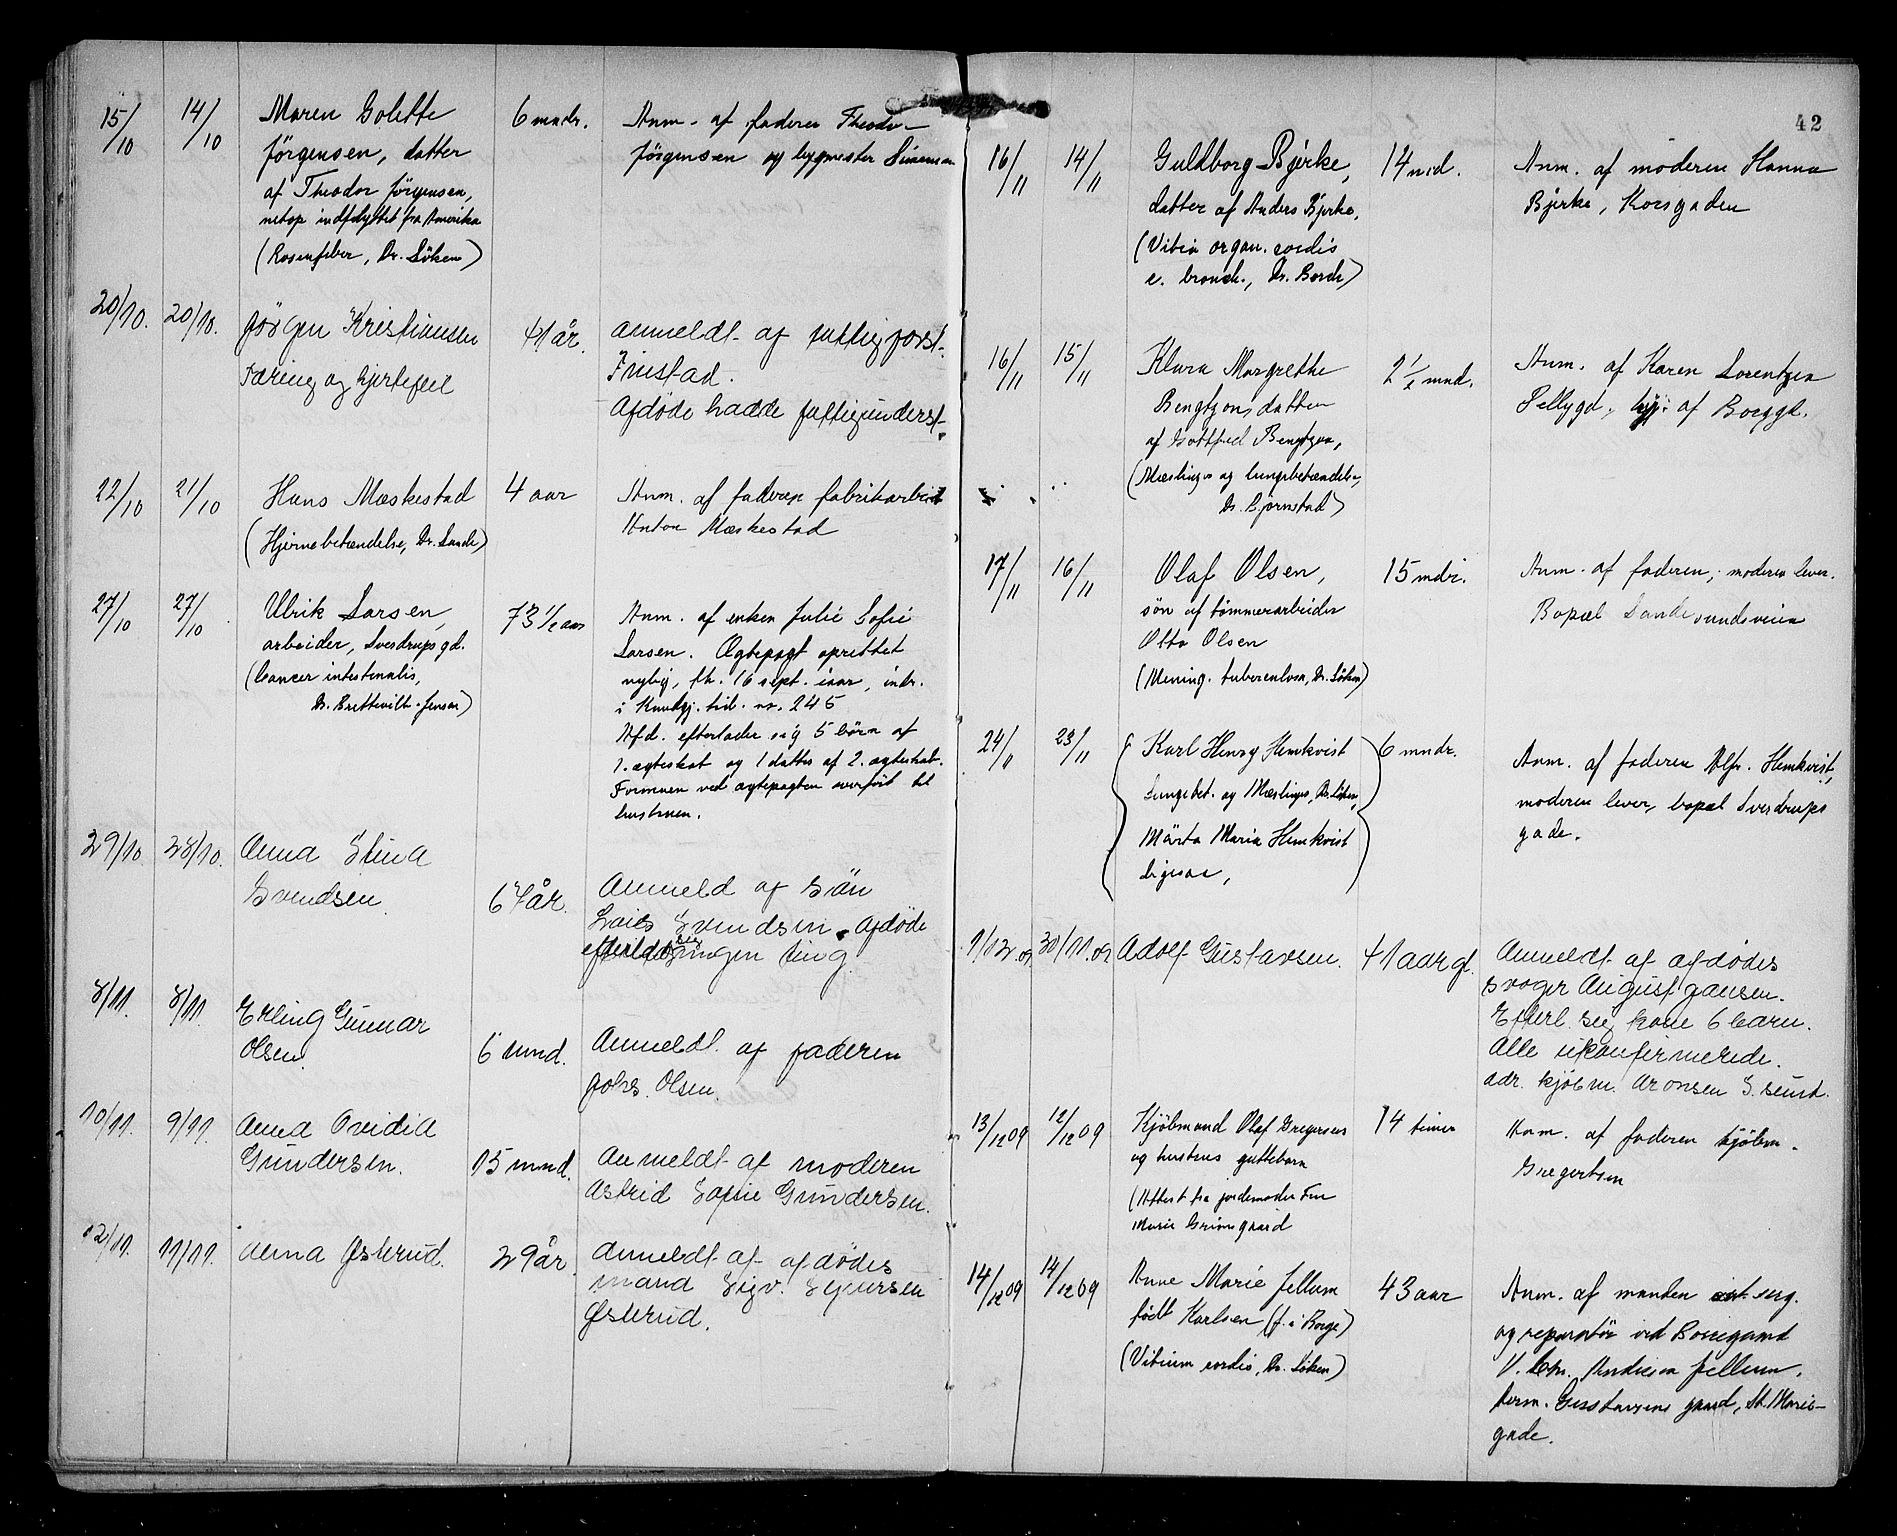 15/10 14/10 Maren Golette 6 mndr. Anm. af faderen Theodor
Jörgensen, datter Jörgensen og bygmester Simensen
af Theodor Jörgensen,
netop indflyttet fra Amerika
(Rosenfeber, Dr. Löken)
20/10. 20/10. Jörgen Kristiansen 41 år. anmeldt af fattigforst.
Tæring og hjertefeil Finstad.
Afdöde hadde fattigunderst.
22/10 21/10 Hans Mæskestad 4 aar Anm. af faderen fabrikarbeid
(Hjernebetændelse, Dr. Lande) Anton Mæskestad
27/10 27/10 Ulrik Larsen, 73 1/2 aar Anm. af enken Julie Sofie
arbeider, Sverdrups gd. Larsen. Ægtepagt oprettet
(Cancer intestinalis, nylig, th. 16 sept. iaar, indr.
Dr. Brettevilt-Jensen) i Kundgj. tid. nr. 245
Afd. efterlader sig 5 börn af
1. ægteskab og 1 datter af 2. ægteskab.
Formuen ved ægtepagten overfört til
hustruen.
29/10 28/10. Anna Stina
Svendsen 67 år. Anmeld af sön
Lars Svendsen. Afdöde
efterlader sig ingen ting.
8/11. 8/11. Erling Gunnar
Olsen. 6 mnd. Anmeldt af faderen
Johs. Olsen.
10/11. 9/11. Anna Ovidia
Gundersen. 15 mnd. Anmeldt af moderen
Astrid Sofie Gundersen.
12/11. 11/11. Anna Østerud. 29 år. Anmeldt af afdødes
mand Sigv. Syversen
Østerud.
42
16/11 14/11 Guldborg Bjerke, 14 md. Anm. af moderen Hanna
datter af Anders Bjerke, Bjerke, Korsgaden
(Vitia organ. cordis
c. bronch., Dr. Borch)
16/11 15/11 Klara Margrethe 2 1/2 mnd. Anm. af Karen Lorentzen
Bengtzonsdatter af Borggd.
af Gottfred Bengtzon,
(Mæslinger og lungebetændelse,
Dr. Bjørnstad)
17/11 16/11 Olaf Olsen, 15 mdr. Anm. af faderen, moderen lever.
sön af tömmerarbeider Bopæl Sandesundsveien
Otto Olsen
(Mening. tuberculosa, Dr. Löken)
24/11 23/11 Karl Henry Hemkvist 6 mndr. Anm. af faderen Alfr. Hemkvist,
Lungebet. og Mæslinger, Dr. Löken, moderen lever, bopæl Sverdrups
Märta Maria Hemkvist gade.
ligesaa,
1/12.09 30/11.09 Adolf Gustavsen. 41 aar gl. Anmeldt af afdödes
svoger August Jansen.
Efterl. sig kone 6 barn.
Alle ukonfirmerede.
adr. kjøbm. Aronsen S. sund.
13/12 09 12/12 09 Kjöbmand Olaf Gregersens 14 timer Anm. af faderen kjöbm.
og hustrus guttebarn Gregertsen
(Attest fra jordemoder Fru
Marie Grimsgaard
14/12 09 14/12 09 Anne Marie Jellum 43 aar Anm. af manden
født Karlsen (f. i Borge) og reparatör ved Borregaard
(Vitium cordis, Dr. Löken) V. Chr. Andersen Jellum.
Herm. Gustavsens gaard, St. Marie-
gade.